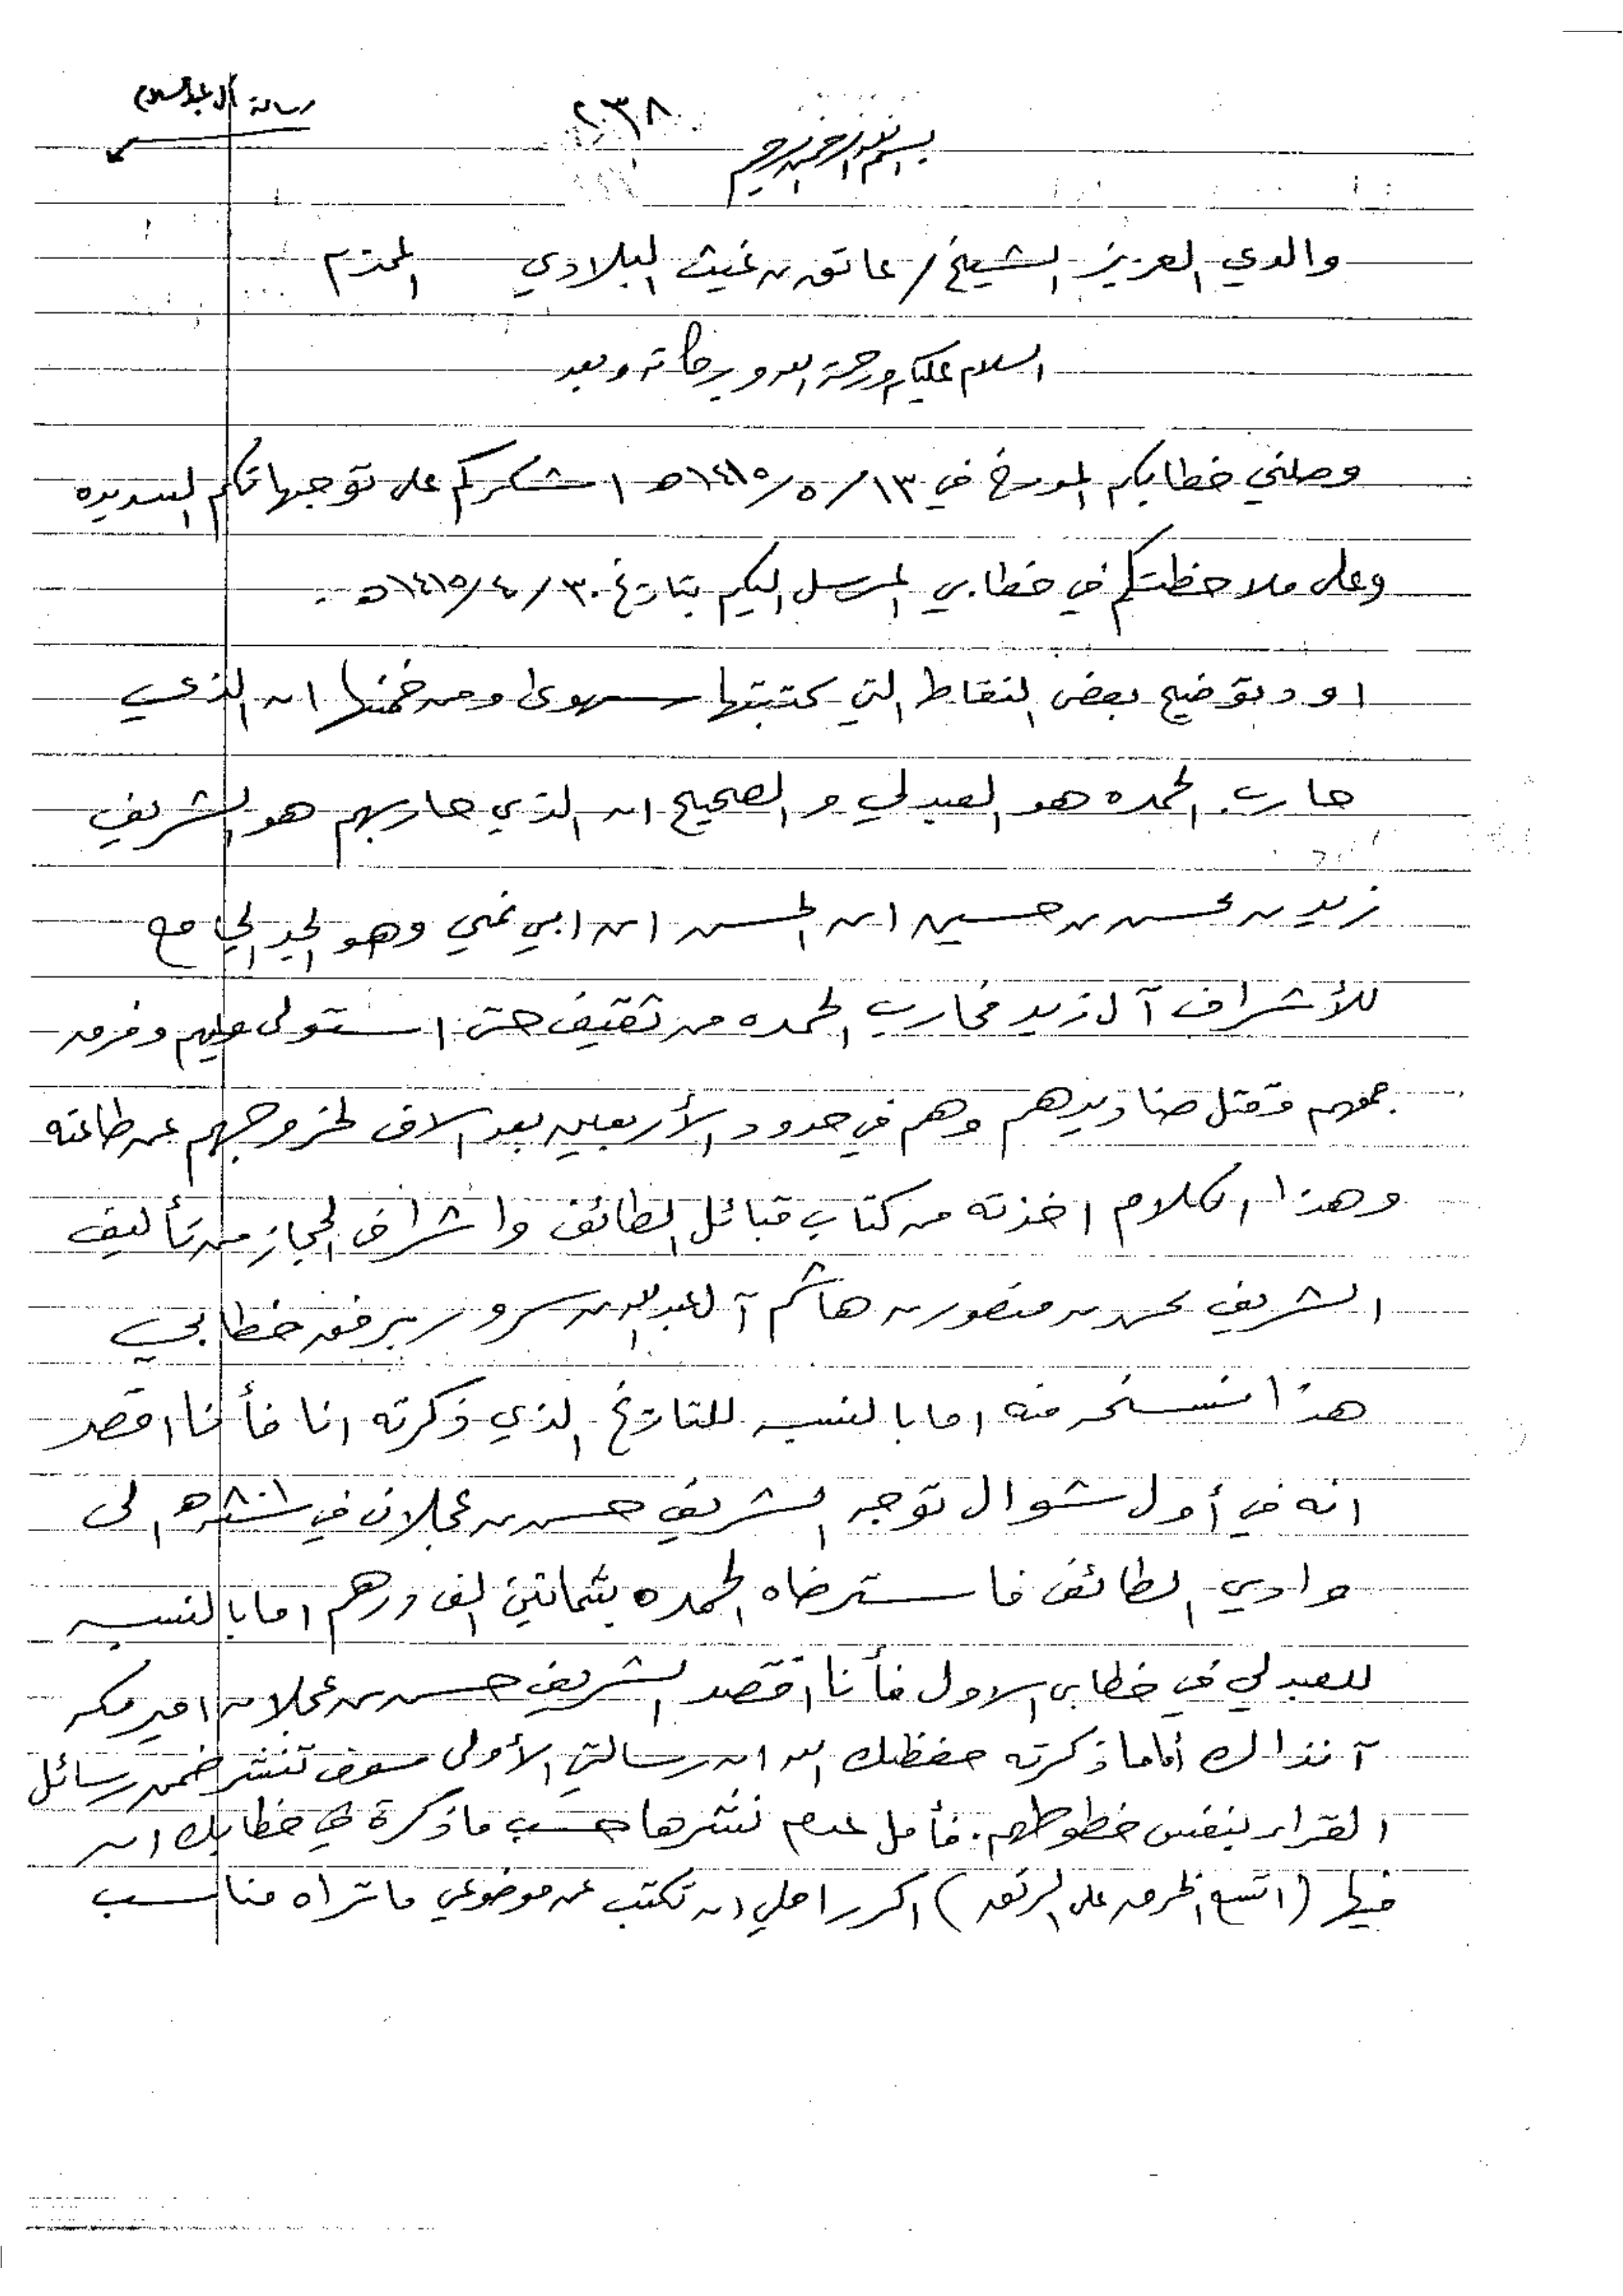 رسالة آل عبدالسلام
٢٣٨
بسم الله الرحمن الرحيم
والدي العزيز الشيخ / عاتق بن غيث البلادي المحترم
السلام عليكم ورحمة الله وبركاته وبعد
وصلني خطابكم المورخ في ١٣/٥/١٤١٥هـ اشكركم على توجيهاتكم السديده
وعلى ملاحظتكم في خطابي المرسل اليكم بتاريخ ٣٠/٤/١٤١٥هـ .
اود توضيح بعض النقاط التي كتبتها سهوى ومن ضمنها ان الذي
حارب الحمده هو العبدلي والصحيح ان الذي حاربهم هو الشريف
زيد بن محسن بن حسين ابن الحسن ابن ابي نمي وهو الجد الجامع
للأشراف آل زيد فحارب الحمده من ثقيف حتى استولى عليهم وفرق
جمعهم وقتل صناديدهم وهم في حدود الأربعين بعد الاف لخروجهم عن طاعته
وهذا الكلام اخذته من كتاب قبائل الطائف واشراف الحجاز من تأليف
الشريف محمد بن منصور بن هاشم آل عبدالله بن سرور برفق خطابي
هذا نسخه منه اما بالنسبه للتاريخ الذي ذكرته انا فأنا اقصد
انه في أول شوال توجه الشريف حسن بن عجلان في سنة ٨٠١هـ الى
وادي الطائف فاسترضاه الحمده بثمانين الف درهم اما بالنسبه
للعبدلي في خطابي الاول فأنا اقصد الشريف حسن بن عجلان امير مكه
آنذاك أما ما ذكرته حفظك الله ان رسالتي الأولى سوف تنشر ضمن رسائل
القراء بنفس خطوطهم. فأمل عدم نشرها حسب ما ذكرة في خطابك ان
فيها (اتسع الخرق على الرتق) اكرر املي ان تكتب عن موضوعي ما تراه مناسب